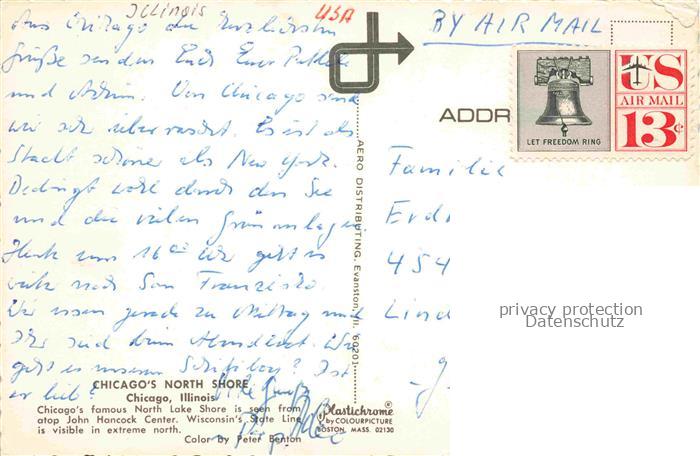 Illinois
USA
BY AIR MAIL
Aus Chicago die herzlichsten
Grüße senden Euch Euer
und Achim. Von Chicago sind
wir sehr überrascht. Es ist als
Stadt schöner als New York.
Bedingt wohl durch den See
und die vielen Grünanlagen.
Heute um 16 Uhr geht es
weiter nach San Franzisko.
Wir essen gerade zu Mittag und
Ihr seid beim Abendbrot. Wie
geht es unserem ? Ist
er lieb?
ADDR
US
AIR MAIL
13c
LET FREEDOM RING
Familie
Erdi
454
Lind
AERO DISTRIBUTING, Evanston, Ill. 60201
privacy protection
Datenschutz
CHICAGO'S NORTH SHORE
Chicago, Illinois
Chicago's famous North Lake Shore is seen from
atop John Hancock Center. Wisconsin's State Line
is visible in extreme north.
Color by Peter Benton
Plastichrome
by COLOURPICTURE
BOSTON, MASS. 02130